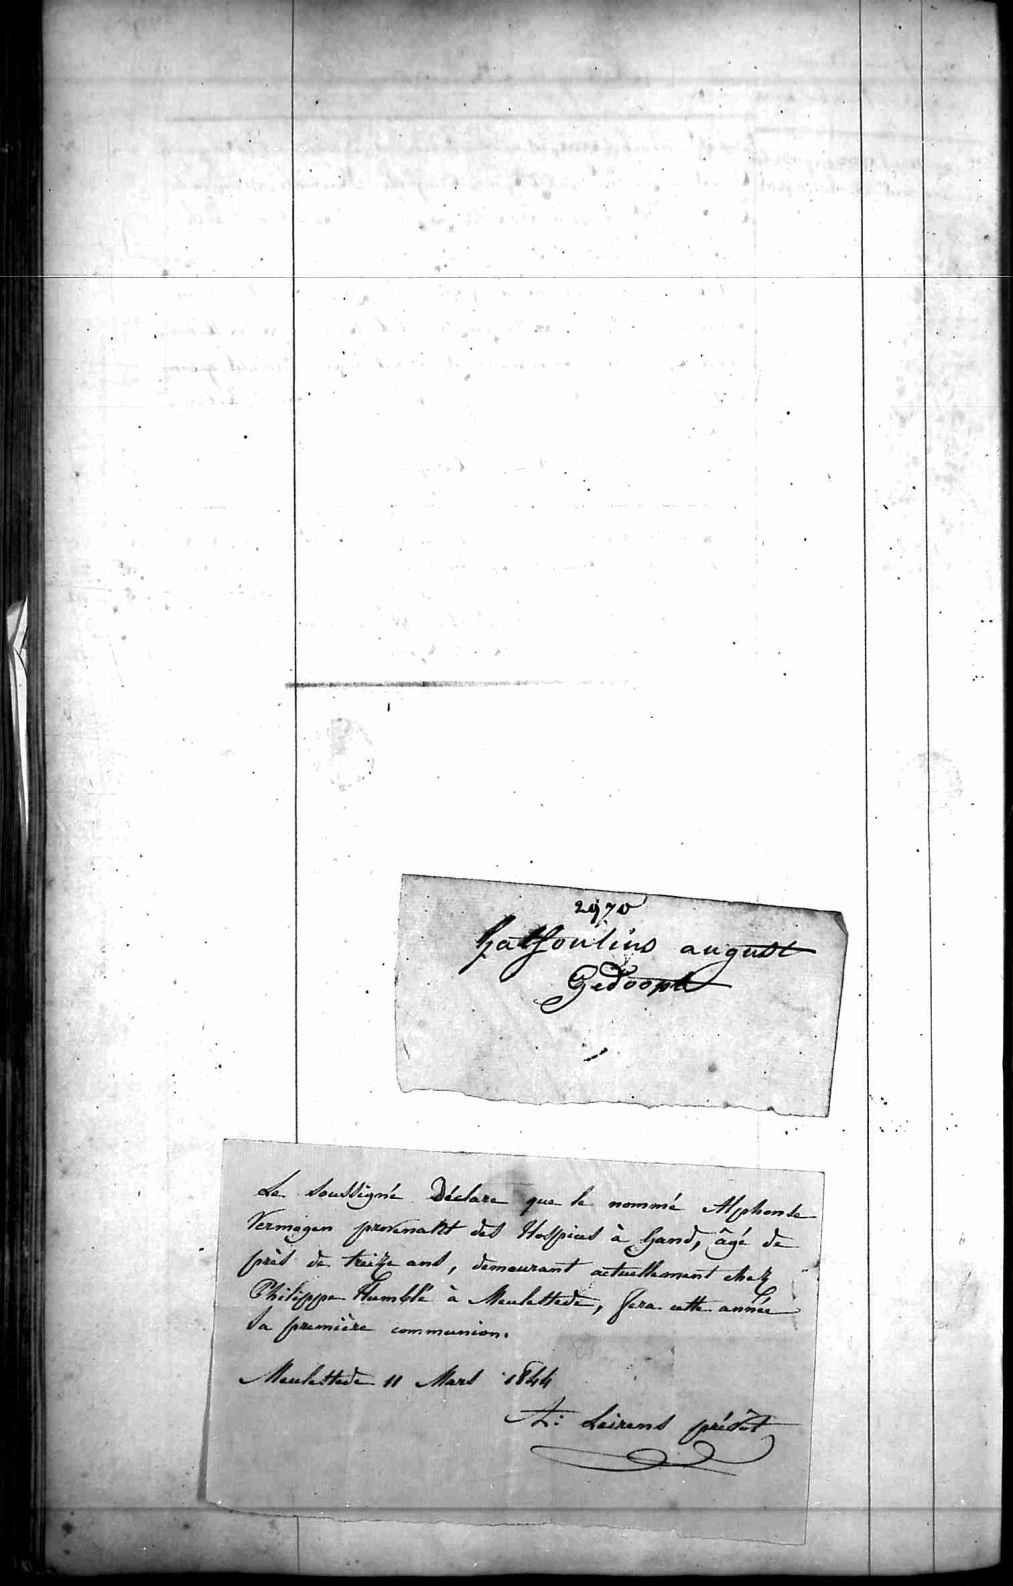 2970
august
Gedoopt
Le soussigné Déclare que le nommé Alphonse
Vermogen provenant des Hospices à Gand, âgé de
près de treize ans, demeurant actuellement chez
Philippe Humblé à Meulestede, fera cette année
sa première communion.
Meulestede 11 Mars 1844
Leirens prévôt